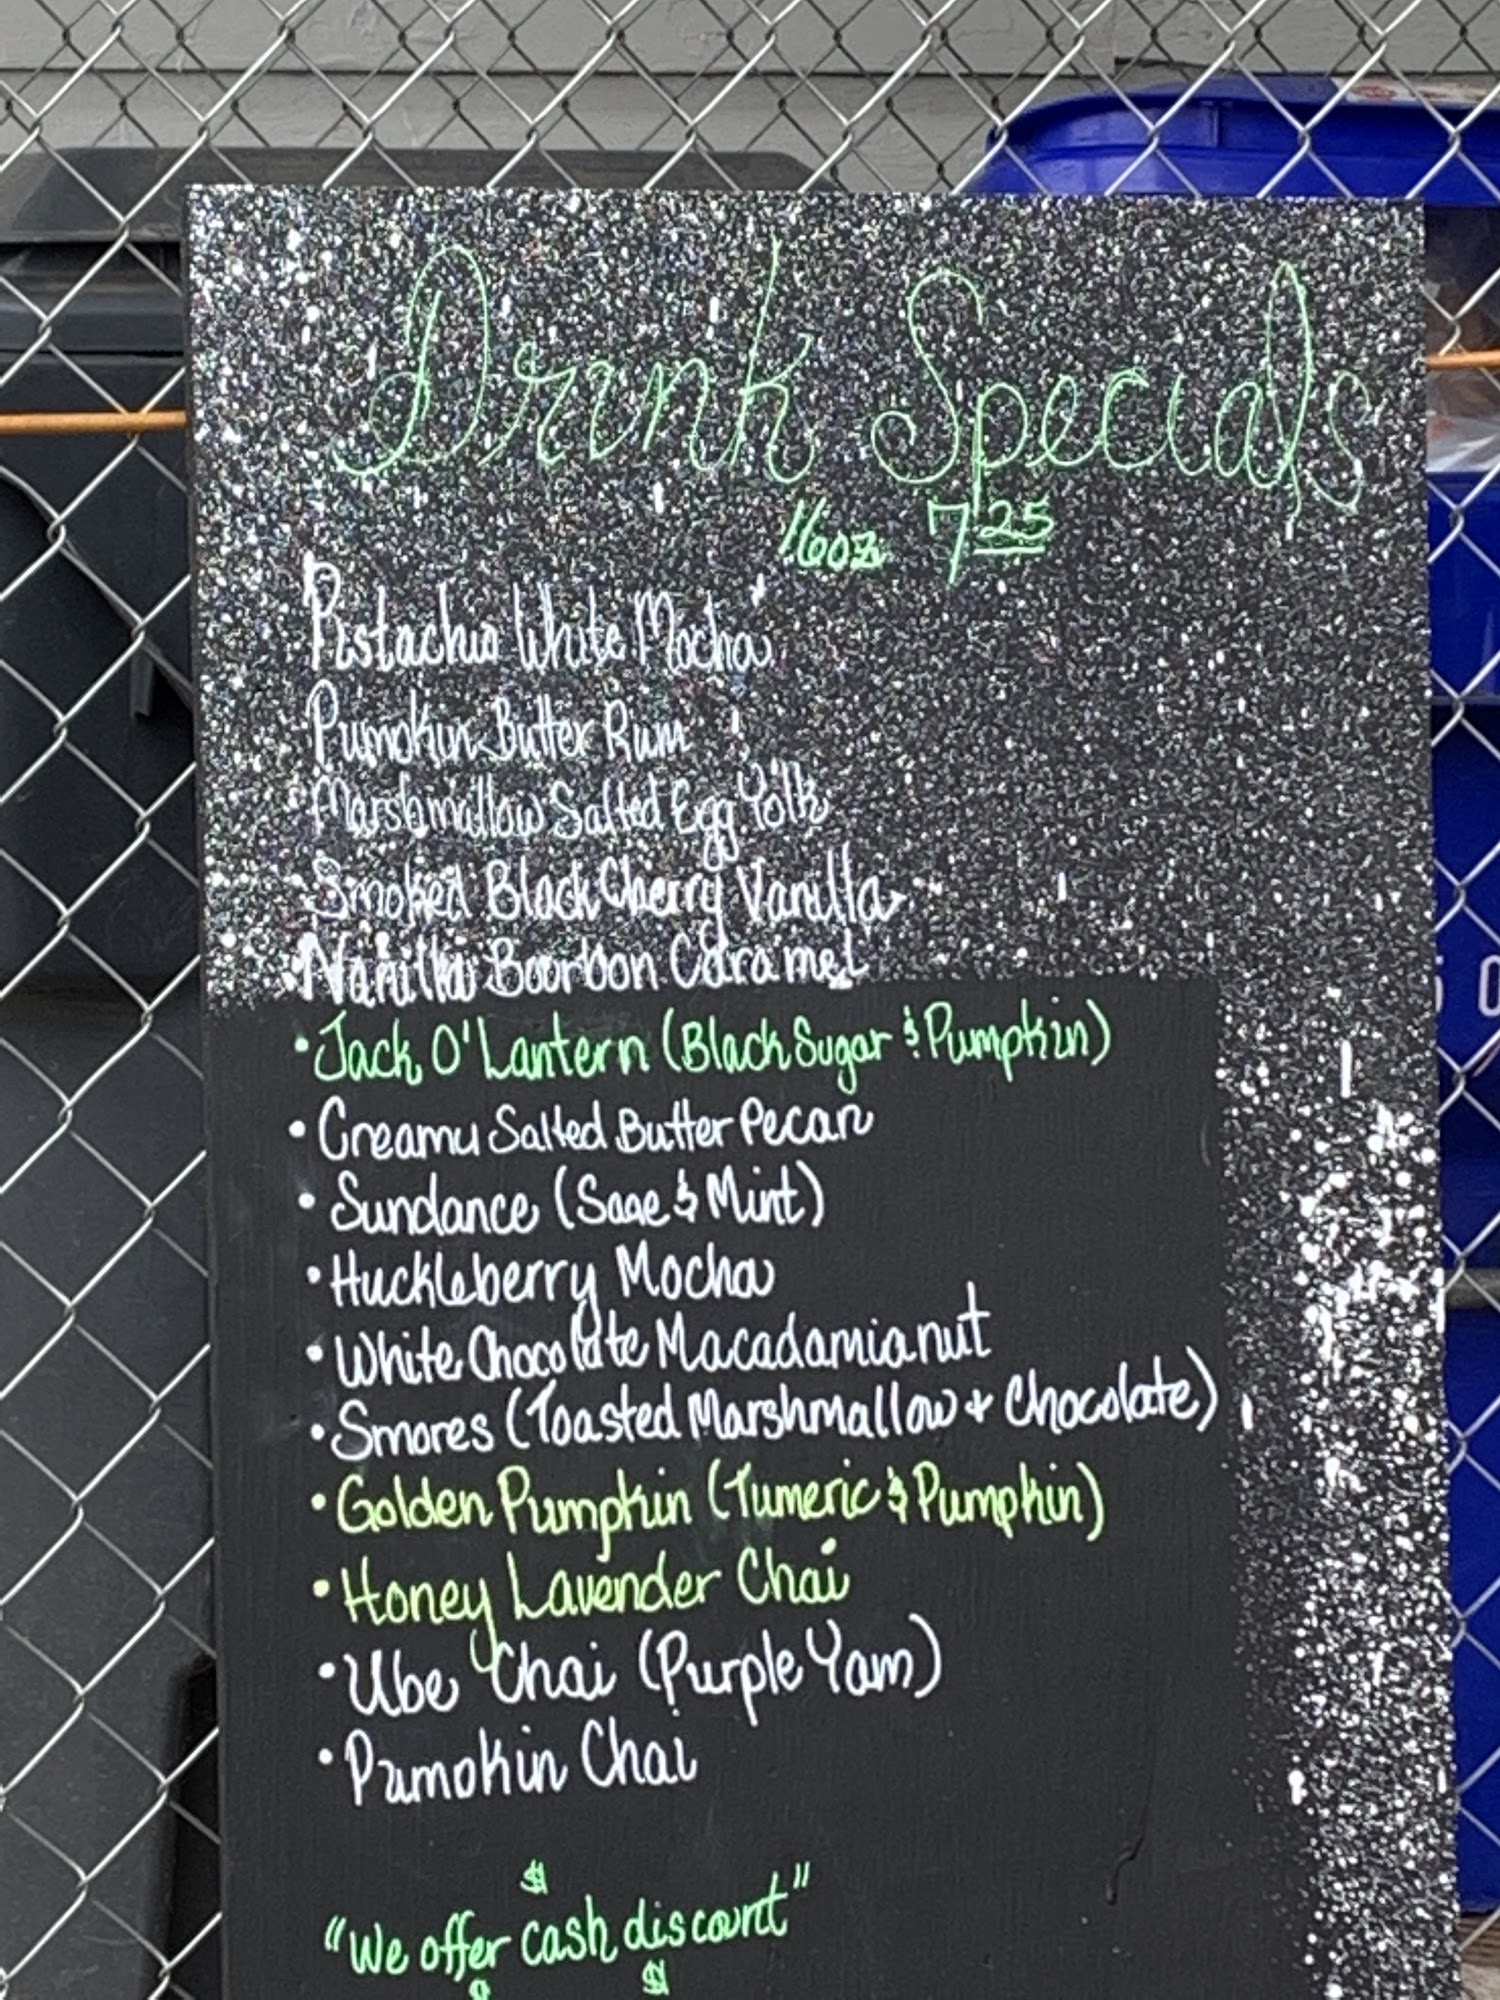 Drink Specials
16oz 7.25
Pistachio White Mocha
Pumpkin Butter Rum
Marshmallow Salted Egg Yolk
Smoked Black Cherry Vanilla
Vanilla Bourbon Caramel
• Jack O'Lantern (Black Sugar & Pumpkin)
• Creamy Salted Butter Pecan
• Sundance (Sage & Mint)
• Huckleberry Mocha
• White Chocolate Macadamia nut
• Smores (Toasted Marshmallow + Chocolate)
• Golden Pumpkin (Tumeric & Pumpkin)
• Honey Lavender Chai
• Ube Chai (Purple Yam)
• Pumpkin Chai
$
"We offer cash discount"
$ $